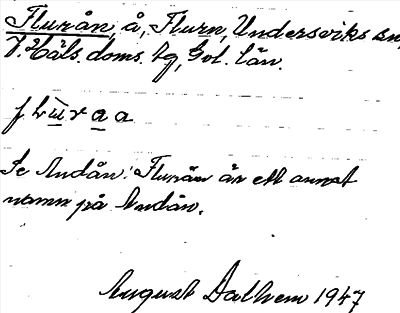 Flurån, å, Flurn, Undersviks sn,
V. Häls. doms. , Gvl. län.
flù̱ra̱a
Se Andån: Flurån är ett annat
namn på Andån.
August Dalhem 1947